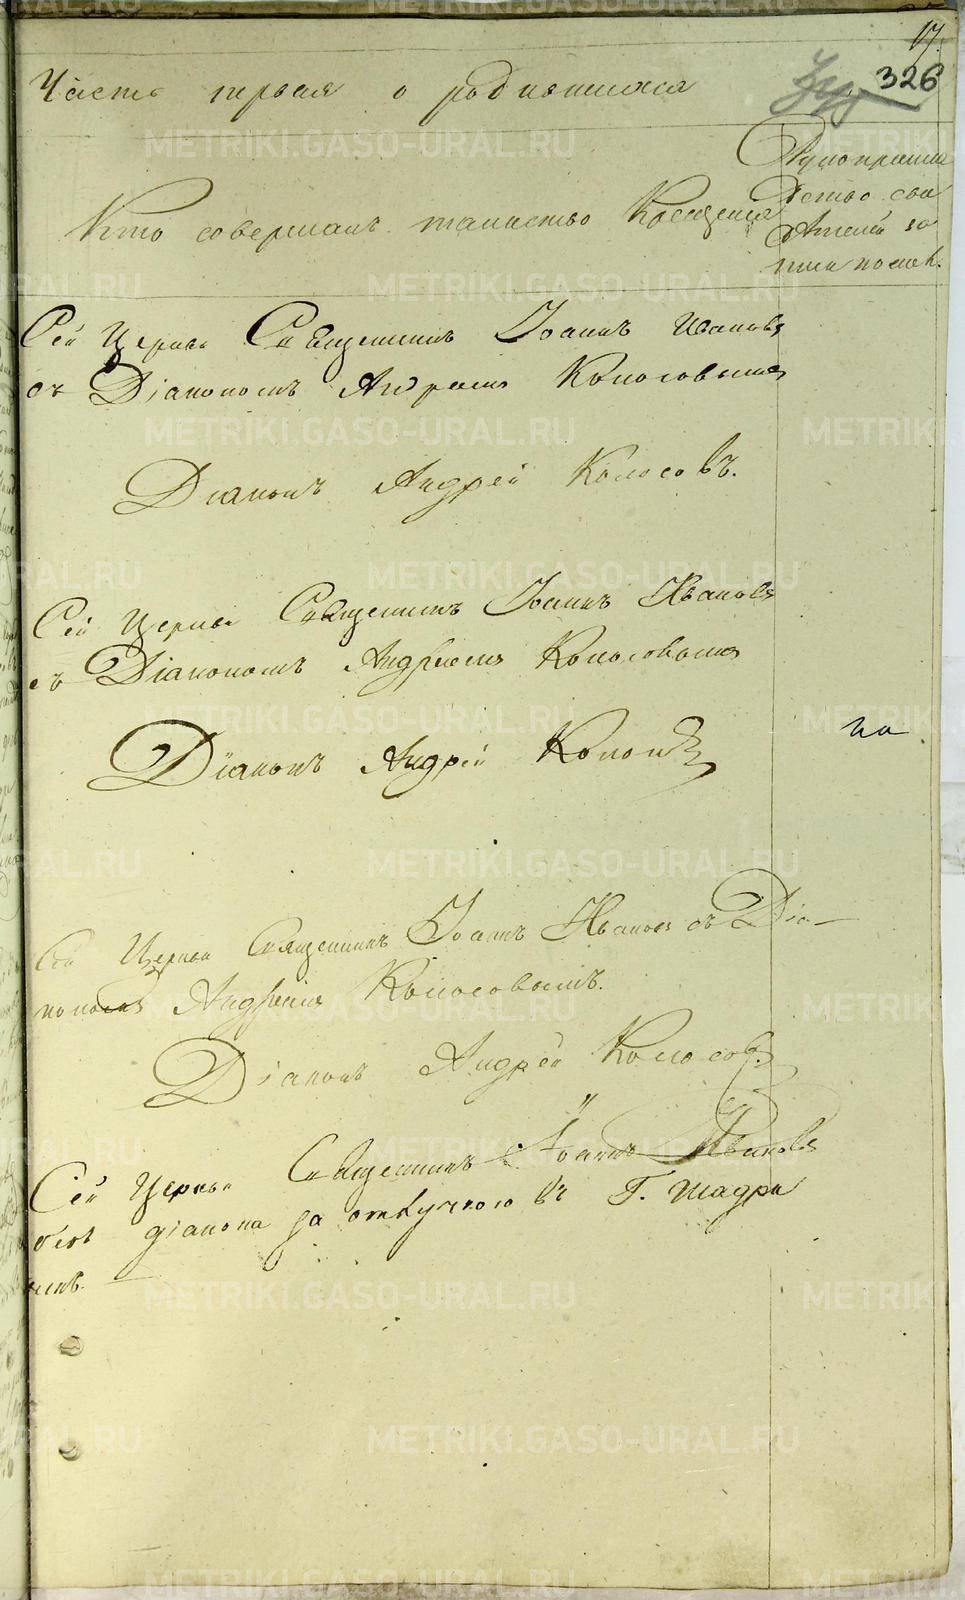 17.
326
Часть первая о родившихся
Кто совершалъ таинство Крещенія
Рукоприкла
детво сви
дѣтелей за
писи по жел.
Сей Церкви Священникъ Іоаннъ Ивановъ
съ Діакономъ Андреемъ Колосовымъ
Діаконъ Андрей Колосовъ.
Сей Церкви Священникъ Іоаннъ Ивановъ
съ Діакономъ Андреемъ Колосовымъ
Діаконъ Андрей Колосовъ
Сей Церкви Священникъ Іоаннъ Ивановъ съ Діа-
кономъ Андреемъ Колосовымъ.
Діаконъ Андрей Колосовъ.
Сей Церкви Священникъ Іоаннъ Ивановъ
безъ діакона за отлучкою въ Г. Шадри
нскъ.
METRIKI.GASO-URAL.RU